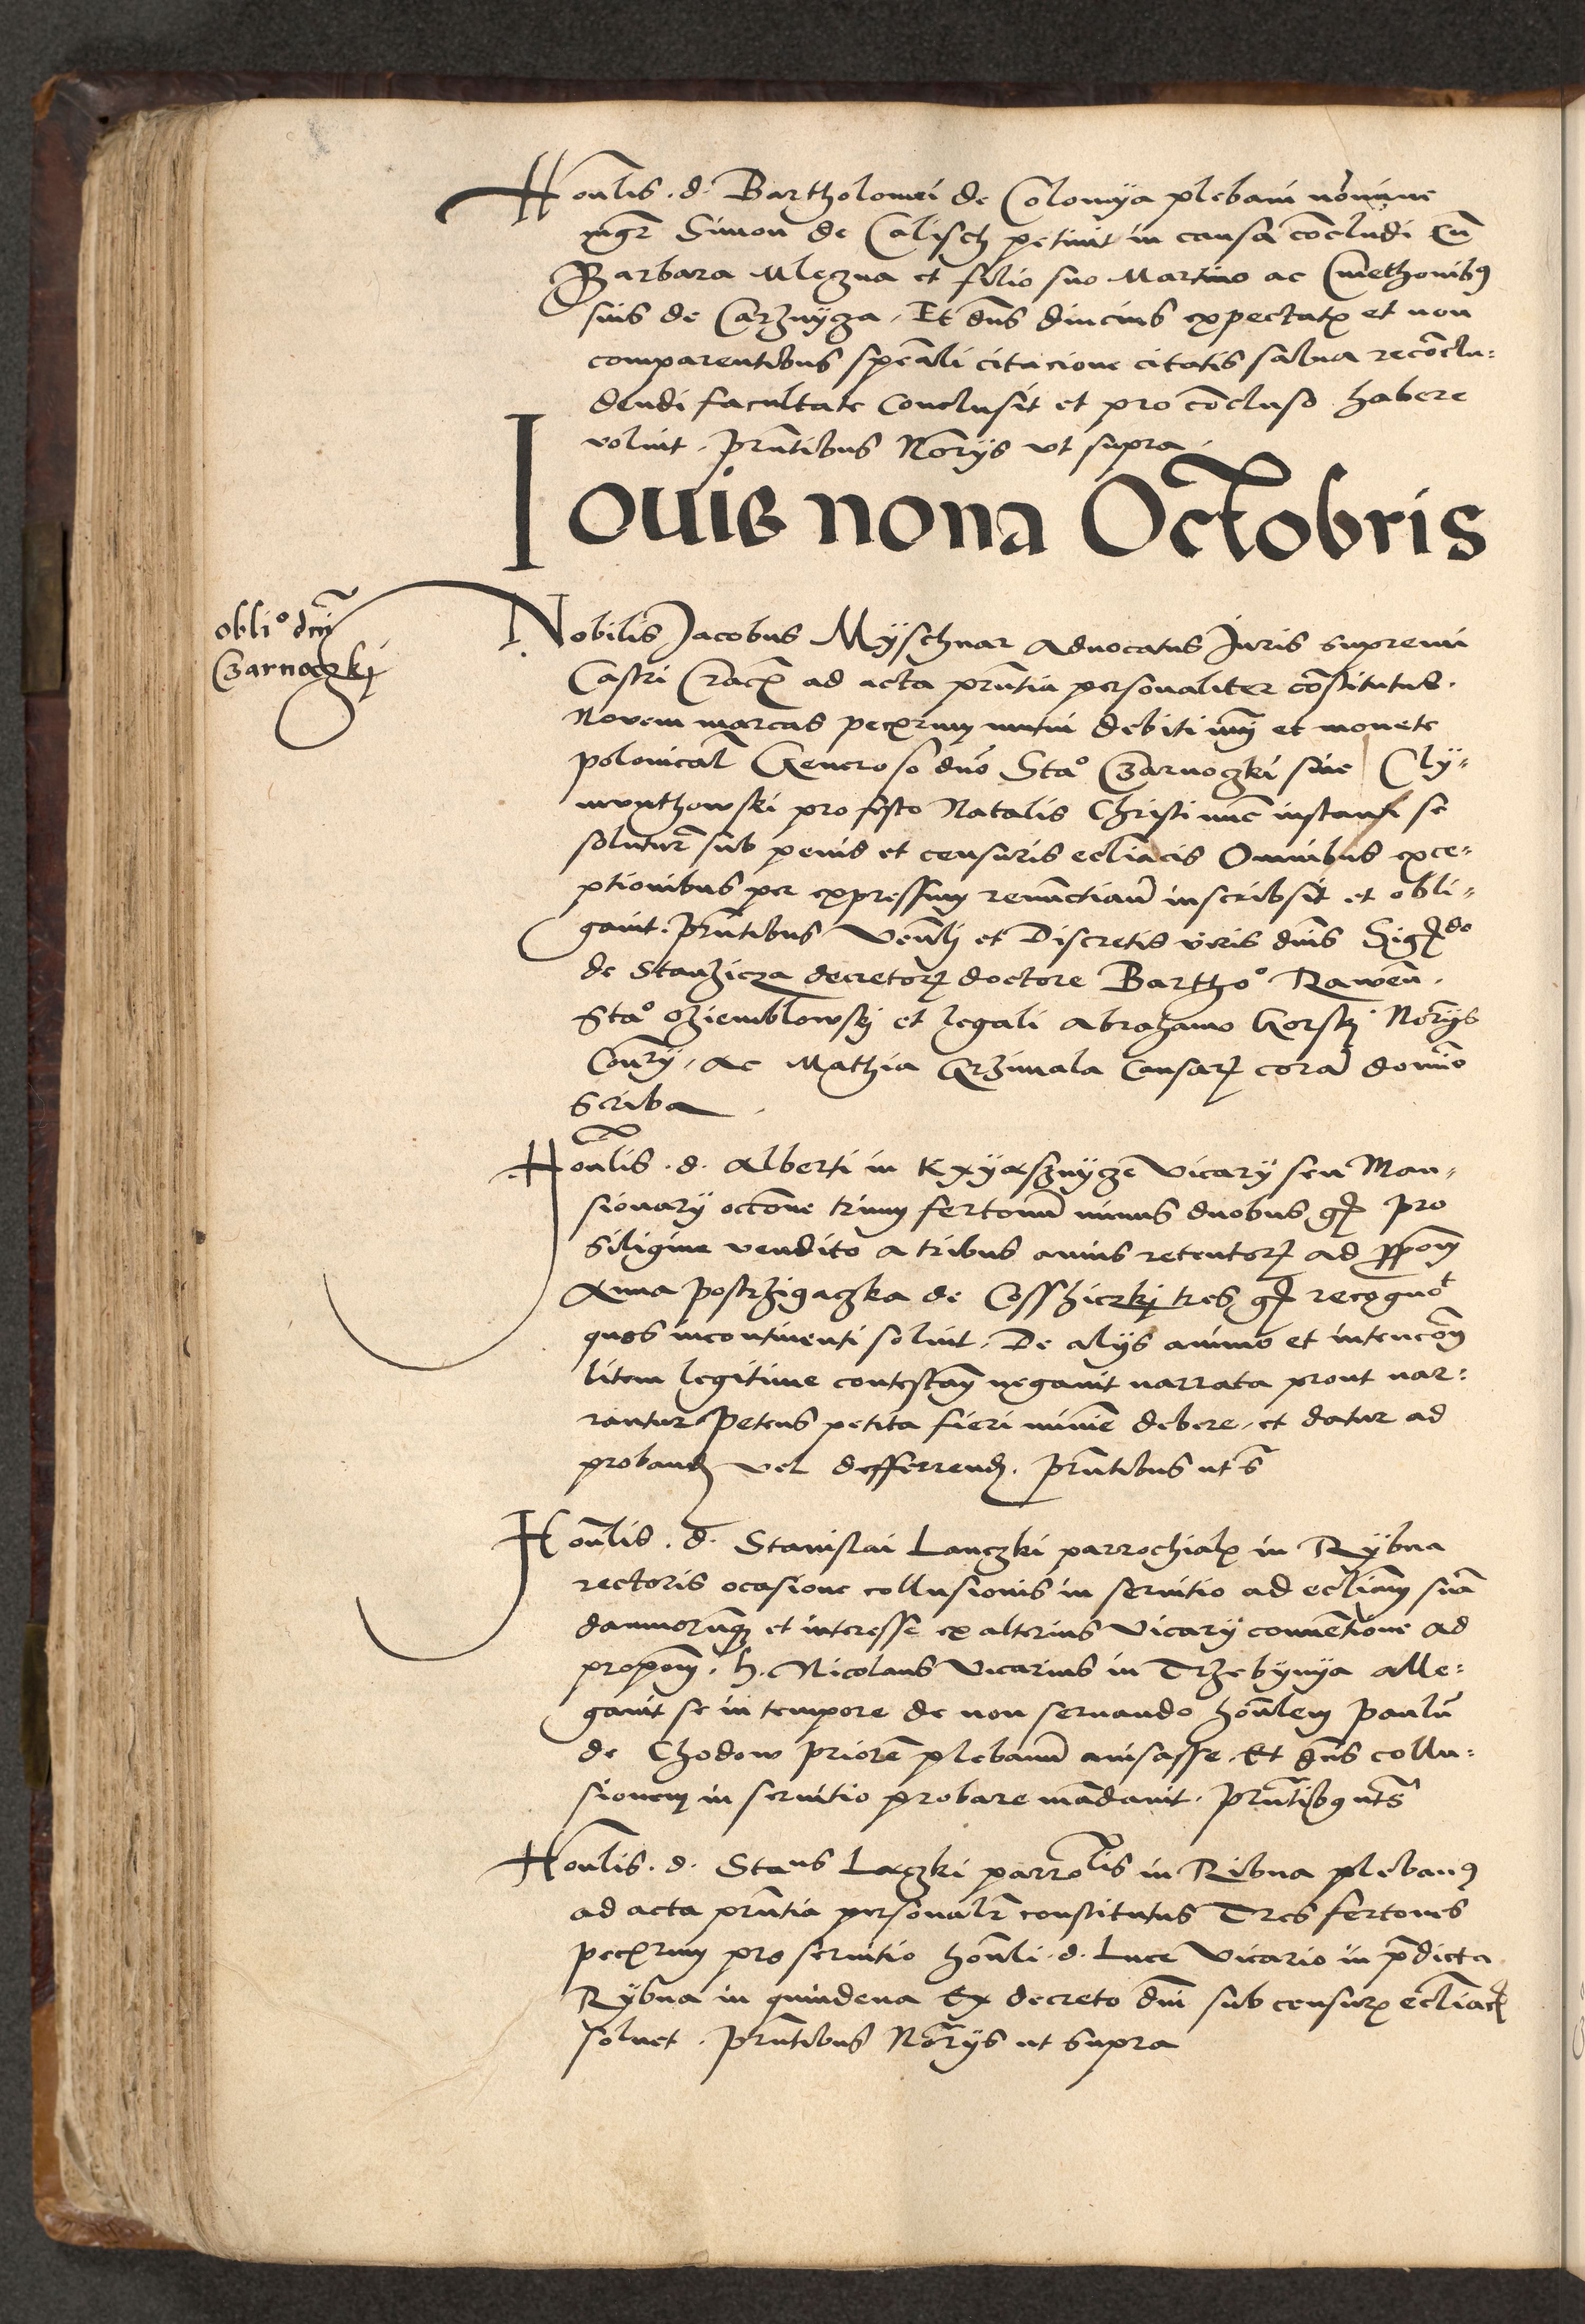 Honlis . d . Bartholomei de Colomya plebani nomine
mgr Simon de Calisch petiuit in causa concludi Cu
Barbara Mleczna et filio suo Martino ac Cmethonibus
suis de Carznycza . Et dns diucius expectatis et non
comparentibus speciali citacione citatis salua reconclu=
dendi facultate Conclusit et pro concluso habere
voluit . prntibus Norys vt supra .
Iouis nona Octobris
oblio dni
Czarnoczkj
Nobilis Jacobus Myschnar Aduocatus Juris supremi
Castri Crac ad acta prntia personaliter constitutus .
Nouem marcas pecrum mutui debiti mm et monete
polonical Generoso dno Stao Czarnoczki siue Cly=
munthowski pro festo Natalis Christi nunc instanti se
soluturum sub penis et censuris ecclíacis Omnibus exce=
ptionibus per expressum renunctiau inscribsit et obli=
gauit . prntibus Venlj et Discretis viris dnis Sigdo
de Stanzicza decretor doctore Bartho Rawen .
Stao Oziemblowskj et legali Abrahamo Gorskj Norys
Conry , Ac Mathia Grzimala Causar cora domio
Scriba .
Honlis . d . Alberti in Kxyasznycze Vicary seu Man=
sionary occone trium fertonu minus duobus gr pro
siligine vendito a tribus annis retentor ad ppom
Anna postrzigaczka de Cosshiczkj tres gr recognot
quos incontinenti soluit . De alys animo et intencom
litem legitime contestam negauit narrata prout nar=
rantur Petens petita fieri minime debere , et datur ad
proband vel defferrend . prntibus ut s
Honlis . d . Stanislai Lanczki parrochial in Rybna
rectoris ocasione collusionis in seruitio ad eccliam sua
damnorumq et interesse ex alterius Vicary conuentione ad
propom . h . Nicolaus Vicarius in Trzebynya alle=
gauit se in tempore de non seruando honlem Paulu
de Chodow Priorem plebanu auisasse . Et dns collu=
sionem in seruitio probare mandauit . prntibus uts
Honlis . d . Stans Laczki parrolis in Ribna plebanus
ad acta prntia personalr constitutus Tres fertones
pecrum pro seruitio honli . d . Luce Vicario in pdicta
Rybna in quindena Ex decreto dni sub censur eccliac
soluet . prntibus Norys ut supra